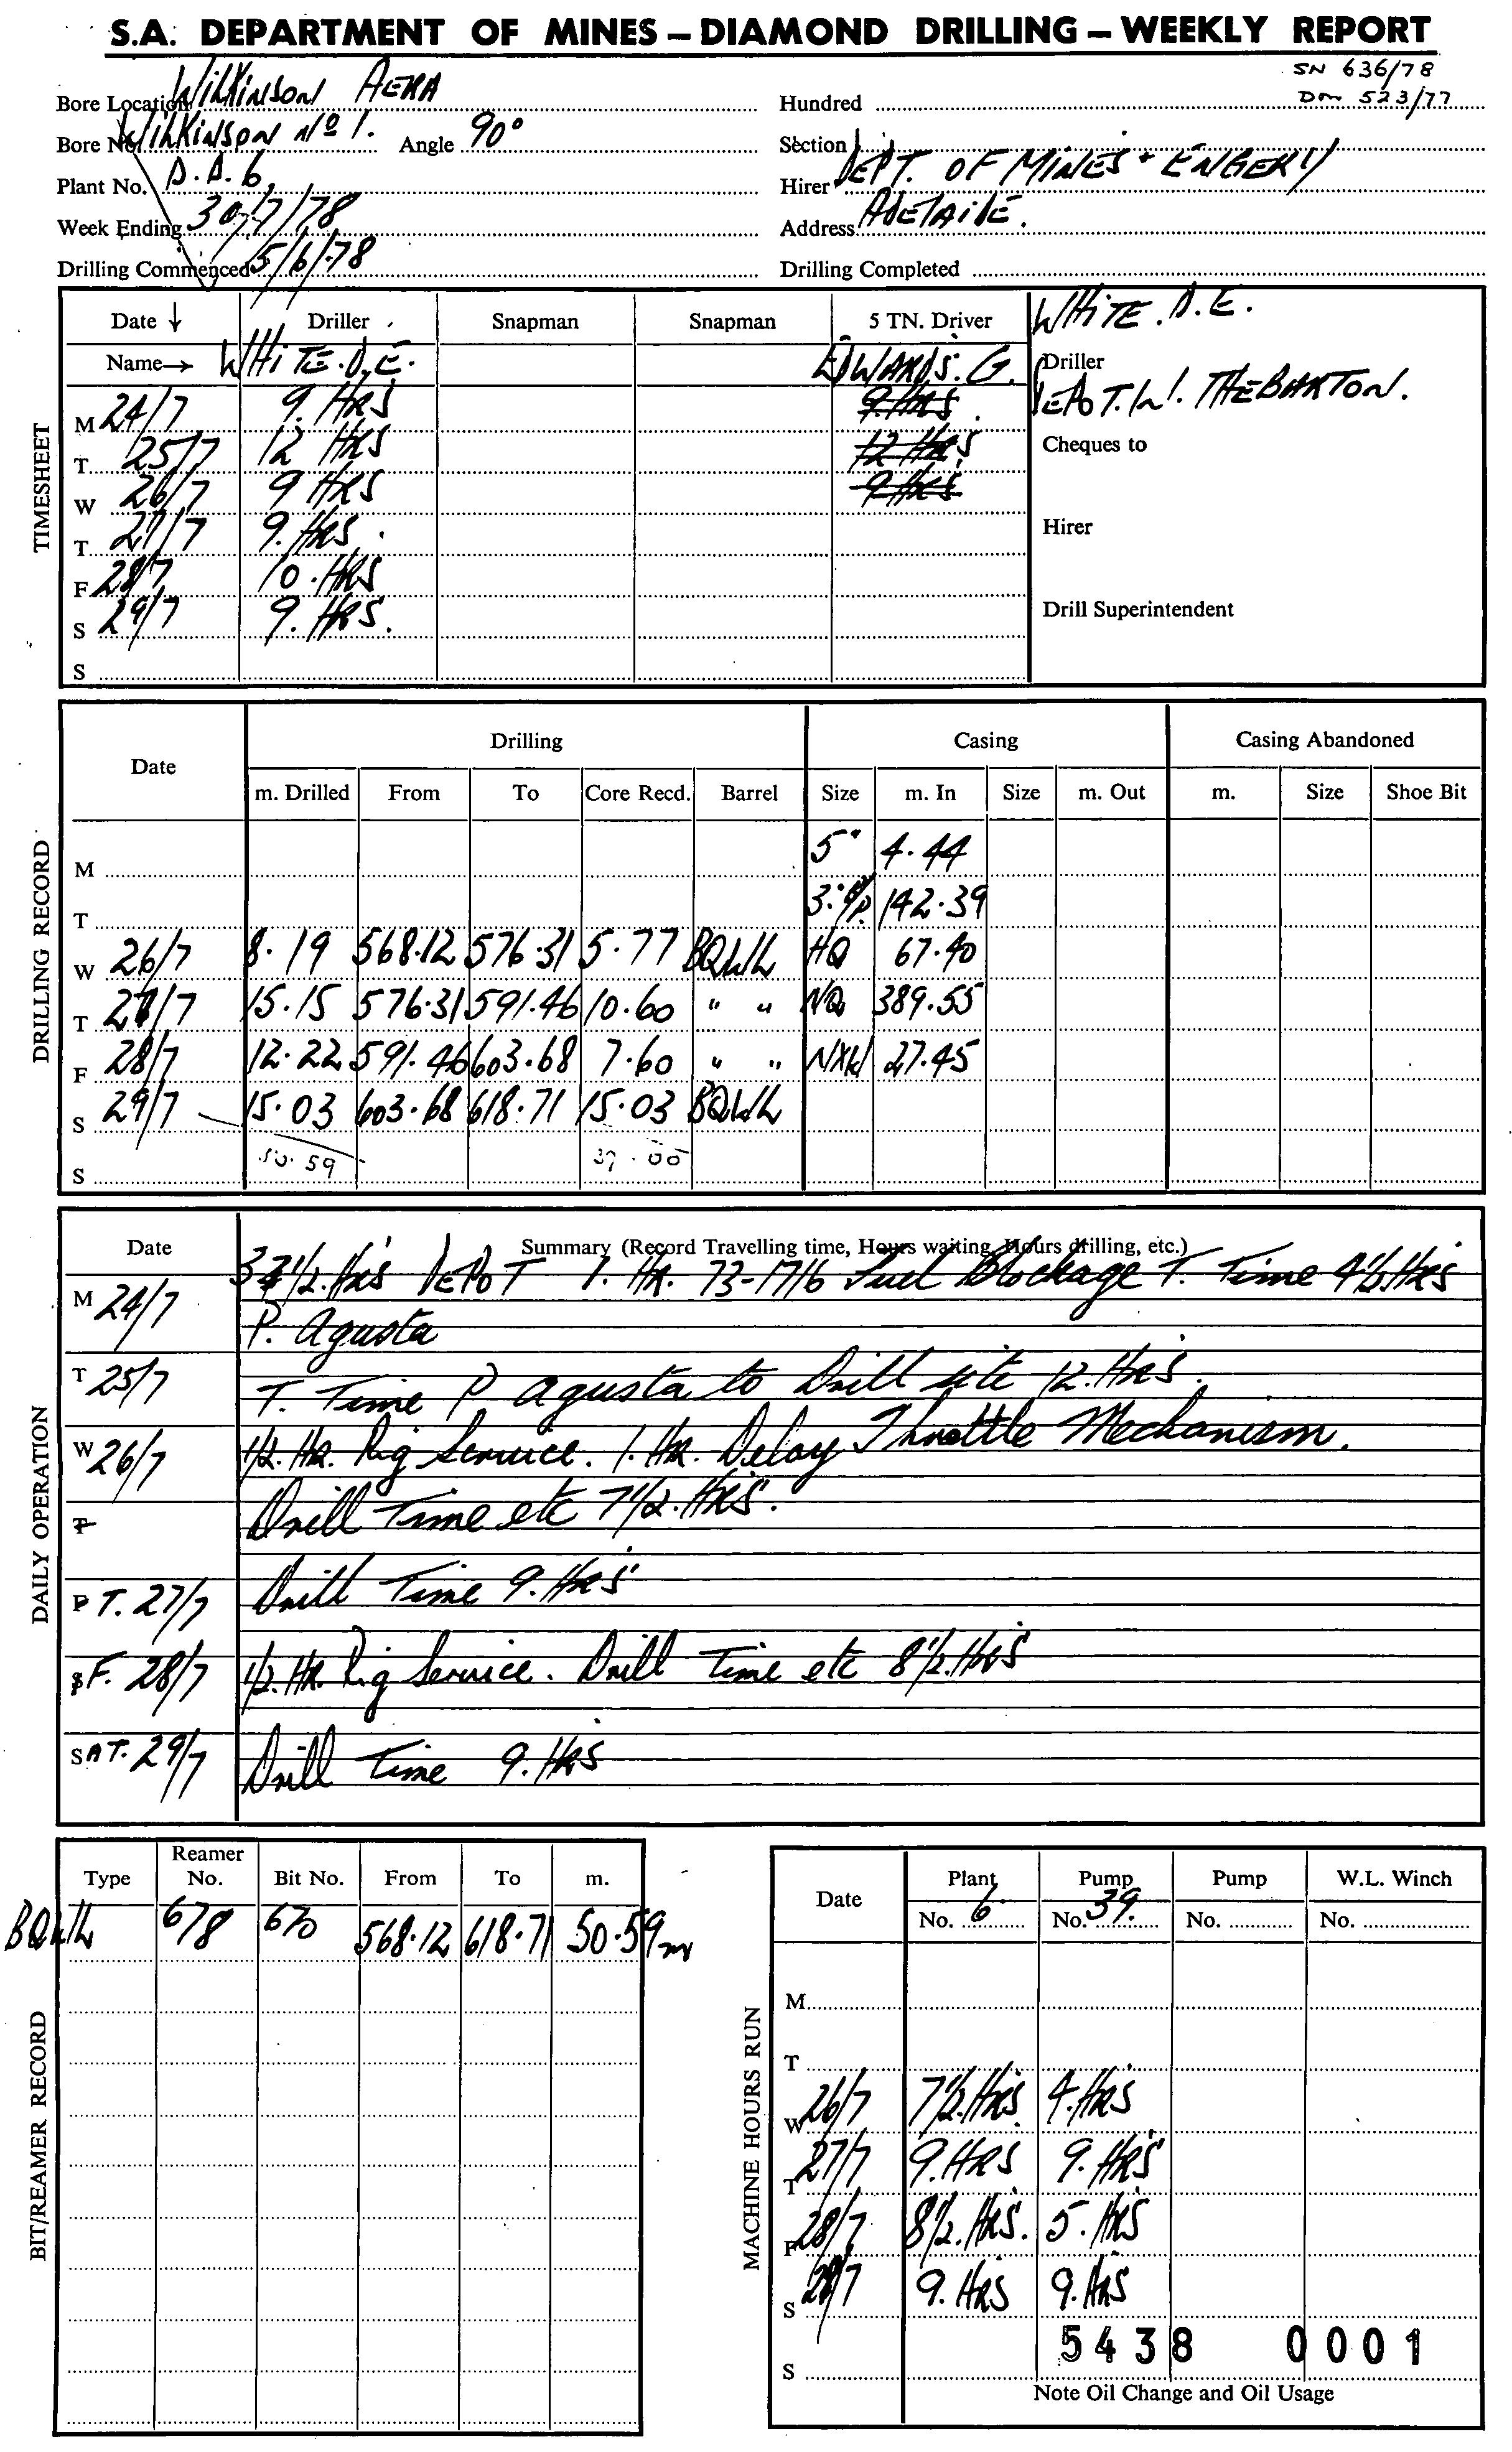 S.A. DEPARTMENT OF MINES – DIAMOND DRILLING – WEEKLY REPORT
SN 636/78
DM 523/77
Bore Location WILKINSON AERA Hundred
Bore No. WILKINSON No 1. Angle 90° Section
Plant No. D.D.6, Hirer DEPT. OF MINES + ENGERY
Week Ending 30/7/78 Address ADELAIDE.
Drilling Commenced 5/6/78 Drilling Completed
TIMESHEET
Date ↓ Driller Snapman Snapman 5 TN. Driver WHITE. D.E.
Name→ WHITE. D.E. EDWARDS. G. Driller
M 24/7 9. HRS 9. HRS DEPOT. THEBARTON.
T 25/7 12 HRS 12 HRS Cheques to
W 26/7 9 HRS 9 HRS
T 27/7 9. HRS. Hirer
F 28/7 10. HRS
S 29/7 9. HRS. Drill Superintendent
S
DRILLING RECORD
Date Drilling Casing Casing Abandoned
m. Drilled From To Core Recd. Barrel Size m. In Size m. Out m. Size Shoe Bit
M 5" 4.44
T 142.39
W 26/7 8.19 568.12 576.31 5.77 BQWL HQ 67.40
T 27/7 15.15 576.31 591.46 10.60 " " NQ 389.55
F 28/7 12.22 591.46 603.68 7.60 " " 27.45
S 29/7 15.03 603.68 618.71 15.03 BQWL
S 50.59 39.00
DAILY OPERATION
Date Summary (Record Travelling time, Hours waiting, Hours drilling, etc.)
M 24/7 3 1/2. Hrs DEPOT 1. HR. 73-1716 Fuel Blockage T. Time 4 1/2 Hrs
P. Agusta
T 25/7 T. Time P Agusta to Drill site 12. HRS.
W 26/7 1/2. HR. Rig Service. 1. HR. Delay Throttle Mechanism.
T Drill Time etc 7 1/2. HRS.
F T. 27/7 Drill Time 9. HRS
S F. 28/7 1/2. HR. Rig Service. Drill Time etc 8 1/2. HRS
SAT. 29/7 Drill Time 9. HRS
BIT/REAMER RECORD
Type Reamer No. Bit No. From To m.
BQWL 678 670 568.12 618.71 50.59m
MACHINE HOURS RUN
Date Plant Pump Pump W.L. Winch
No. 6. No. 39. No. No.
M
T
W 26/7 7 1/2. HRS 4. HRS
T 27/7 9. HRS 9. HRS
F 28/7 8 1/2. HRS. 5. HRS
S 29/7 9. HRS 9. HRS
5438 0001
S
Note Oil Change and Oil Usage